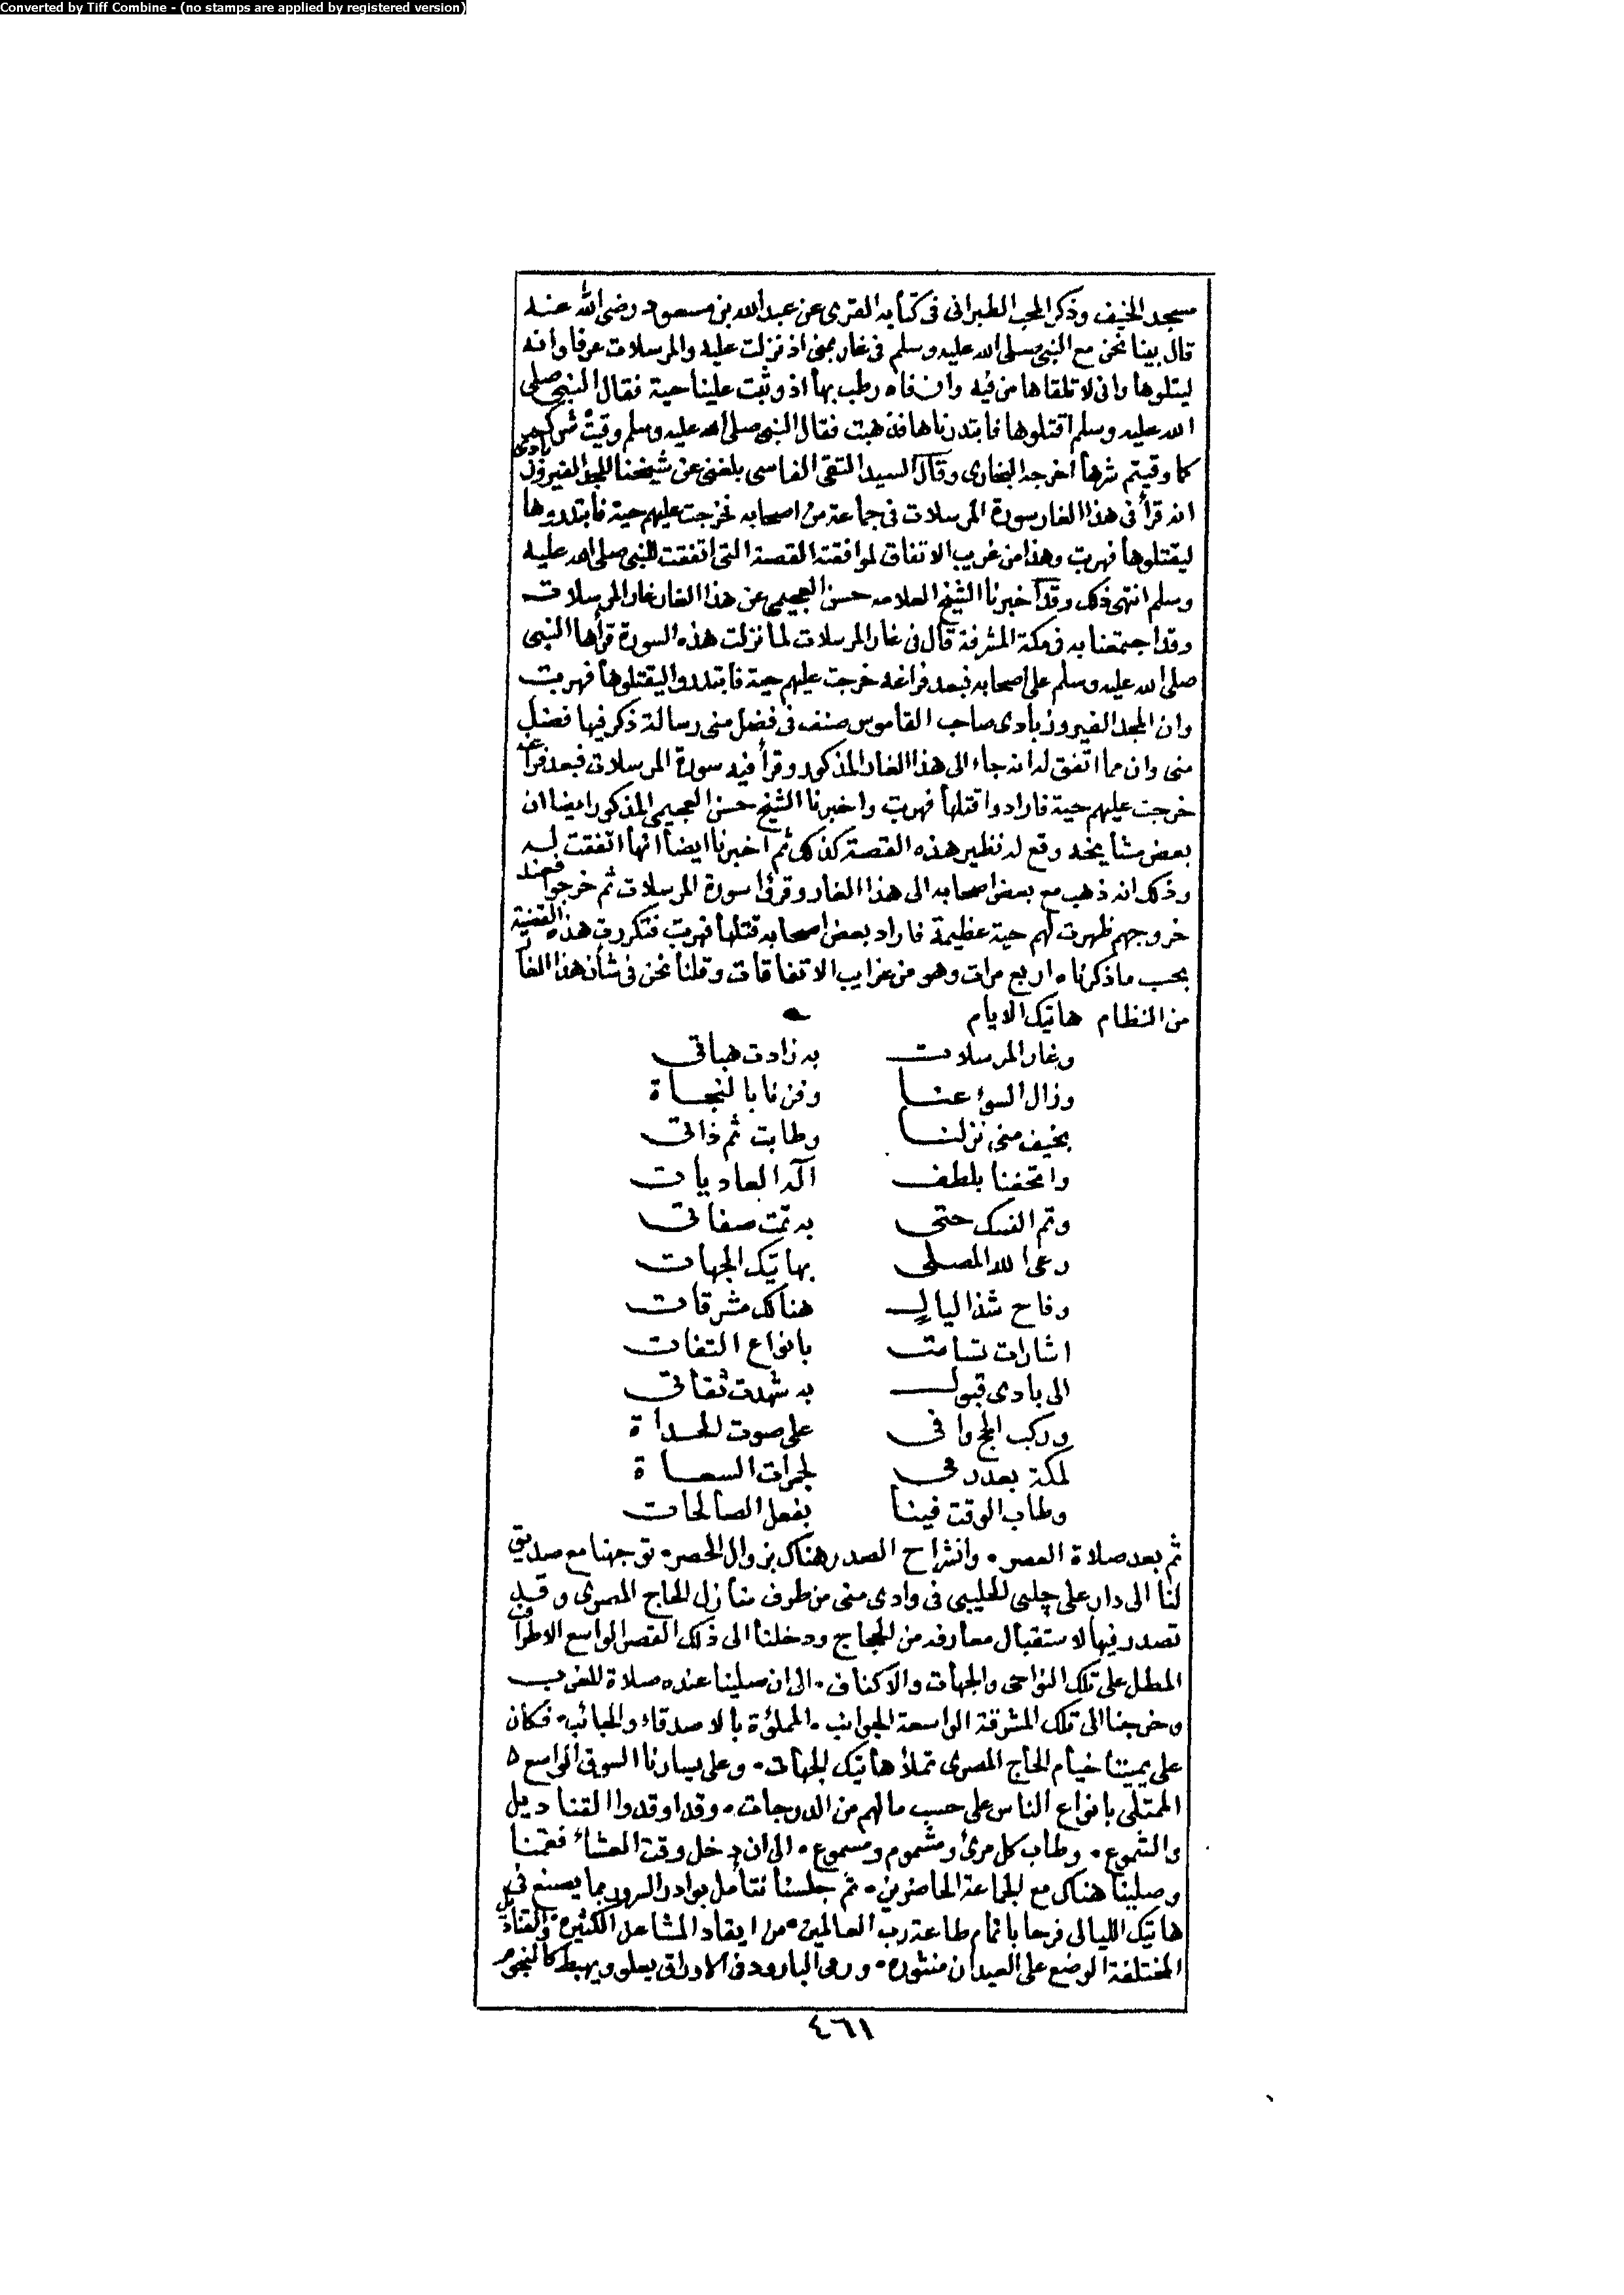 Converted by Tiff Combine - (no stamps are applied by registered version)
مسجد الخيف وذكر المحب الطبرانى فى كتابه القرى عن عبد الله بن مسعود رضى الله عنه
قال بينا نحن مع النبى صلى الله عليه وسلم فى غار بمنى اذ نزلت عليه والمرسلات عرفا وانه
ليتلوها وانى لا تلقاها من فيه وان فاه رطب بها اذ وثبت علينا حية فقال النبى صلى
الله عليه وسلم اقتلوها فابتدرناها فذهبت فقال النبى صلى الله عليه وسلم وقيت شركم
كما وقيتم شرها اخرجه البخارى وقال السيد التقى الفاسى بلغنى عن شيخنا المجد الفيروز بادى
انه قرأ فى هذا الغار سورة المرسلات فى جماعة من اصحابه فخرجت عليهم حية فابتدروها
ليقتلوها فهربت وهذا من غريب الاتفاق لموافقته القصة التى اتفقت للنبى صلى الله عليه
وسلم انتهى ذلك وقد اخبرنا الشيخ العلامه حسن العجيمى عن هذا الغار غار المرسلات
وقد اجتمعنا به فى مكة المشرفة قال فى غار المرسلات لما نزلت هذه السورة قرأها النبى
صلى الله عليه وسلم على اصحابه فبعد فراغه خرجت عليهم حية فابتدروا ليقتلوها فهربت
وان المجد الفيروز بادى صاحب القاموس صنف فى فضل منى رسالة ذكر فيها فضل
منى وان مما اتفق له انه جاء الى هذا الغار المذكور وقرأ فيه سورة المرسلات فبعد فراغه
خرجت عليهم حية فارادوا قتلها فهربت واخبرنا الشيخ حسن العجيمى المذكور ايضا ان
بعض مشايخه وقع له نظير هذه القصة كذلك ثم اخبرنا ايضا انها اتفقت له
وذلك انه ذهب مع بعض اصحابه الى هذا الغار وقرئوا سورة المرسلات ثم خرجوا فعند
خروجهم ظهرت لهم حية عظيمة فاراد بعض اصحابه قتلها فهربت فتكررت هذه القضية
بحسب ما ذكرناه اربع مرات وهو من غرايب الاتفاقات وقلنا نحن فى شأن هذا الغار
من النظام هاتيك الايام
وغار المرسلات به زادت هباتى
وزال السوء عنا وفزنا بالنجاة
بخيف منى نزلنا وطابت ثم ذاتى
واتحفنا بلطف اله العاديات
وتم النسك حتى به تمت صفاتى
دعى الله المصلى بهاتيك الجهات
وفاح شذا ليال هنالك مشرقات
اشارات تسامت بانواع التفات
الى بادى قبول به شهدت ثقاتى
وركب الحج وافى على صوت الحداة
لمكة بعد رمى لجمرات السعاة
وطاب الوقت فينا بفعل الصالحات
ثم بعد صلاة العصر وانشراح الصدر هناك بزوال الحصر توجهنا مع صديق
لنا الى دار على چلبى الحليبى فى وادى منى من طرف منازل الحاج المصرى وقد
تصدر فيها لاستقبال معارفه من الحجاج ودخلنا الى ذلك القصر الواسع الاطراف
المطل على تلك النواحى والجهات والاكناف الى ان صلينا عنده صلاة المغرب
وخرجنا الى تلك المشرقة الواسعة الجوانب المملؤة بالاصدقاء والحبائب فكان
على يميننا خيام الحاج المصرى تملأ هاتيك الجهات وعلى يسارنا السوق الواسع
الممتلى بانواع الناس على حسب مالهم من الدرجات وقد اوقدوا القناديل
والشموع وطاب كل مرئ ومشموم ومسموع الى ان دخل وقت العشاء فقمنا
وصلينا هناك مع الجماعة الحاضرين ثم جلسنا نتأمل بوادر السرور بما يصنع فى
هاتيك الليالى فرحا باتمام طاعة رب العالمين من ايقاد المشاعل الكثيره والقناديل
المختلفة الوضع على العيدان منثوره ورمى البارود فى الاوراق يعلو ويهبط كالنجوم
٤٦١